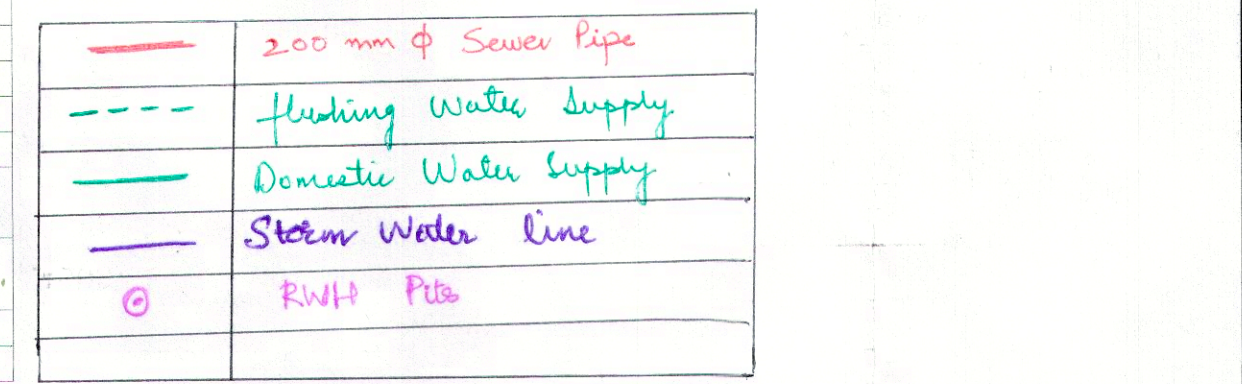 200 mm ϕ Sewer Pipe
flushing Water Supply
Domestic Water Supply
Storm Water line
RWH Pits